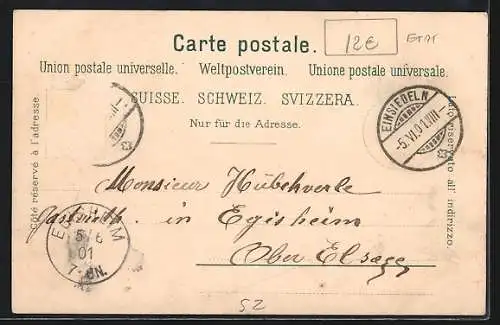 Carte postale.
12€
Union postale universelle. Weltpostverein. Unione postale universale.
SUISSE. SCHWEIZ. SVIZZERA.
Nur für die Adresse.
Côté réservé à l'adresse.
Lato riservato all' indirizzo.
EINSIEDELN
-5.VI.01.VIII-
Monsieur Hübehverle
in Egisheim
Ober Elsass
EGISHEIM
5/6
01
7-8N.
52